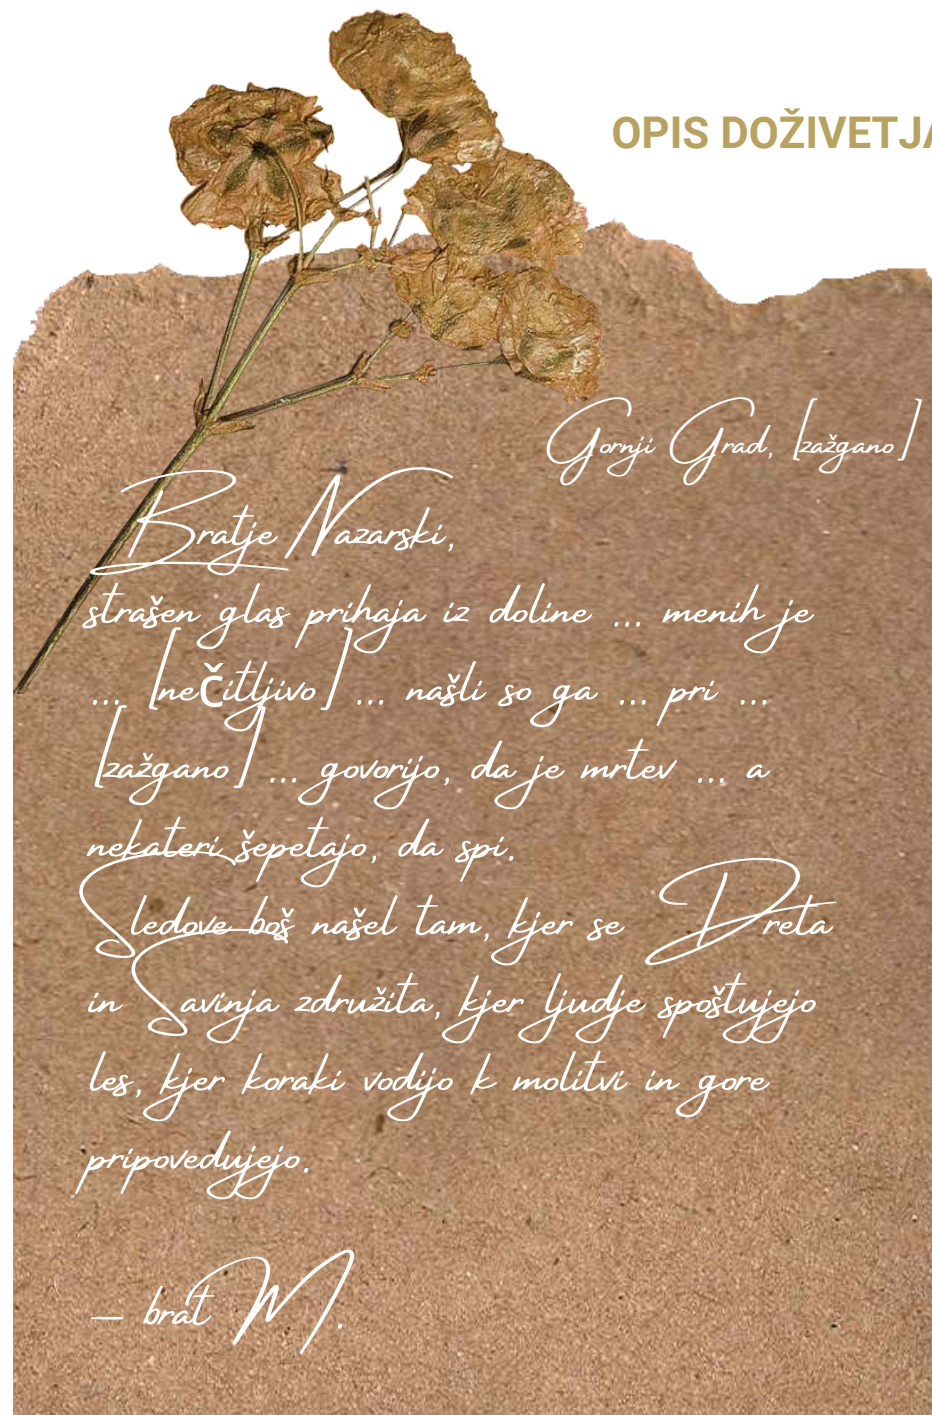 OPIS DOŽIVETJA
Gornji Grad, [zažgano]
Bratje Nazarski,
strašen glas prihaja iz doline ... menih je
... [nečitljivo] ... našli so ga ... pri ...
[zažgano] ... govorijo, da je mrtev ... a
nekateri šepetajo, da spi.
Sledove boš našel tam, kjer se Dreta
in Savinja združita, kjer ljudje spoštujejo
les, kjer koraki vodijo k molitvi in gore
pripovedujejo.
– brat M.